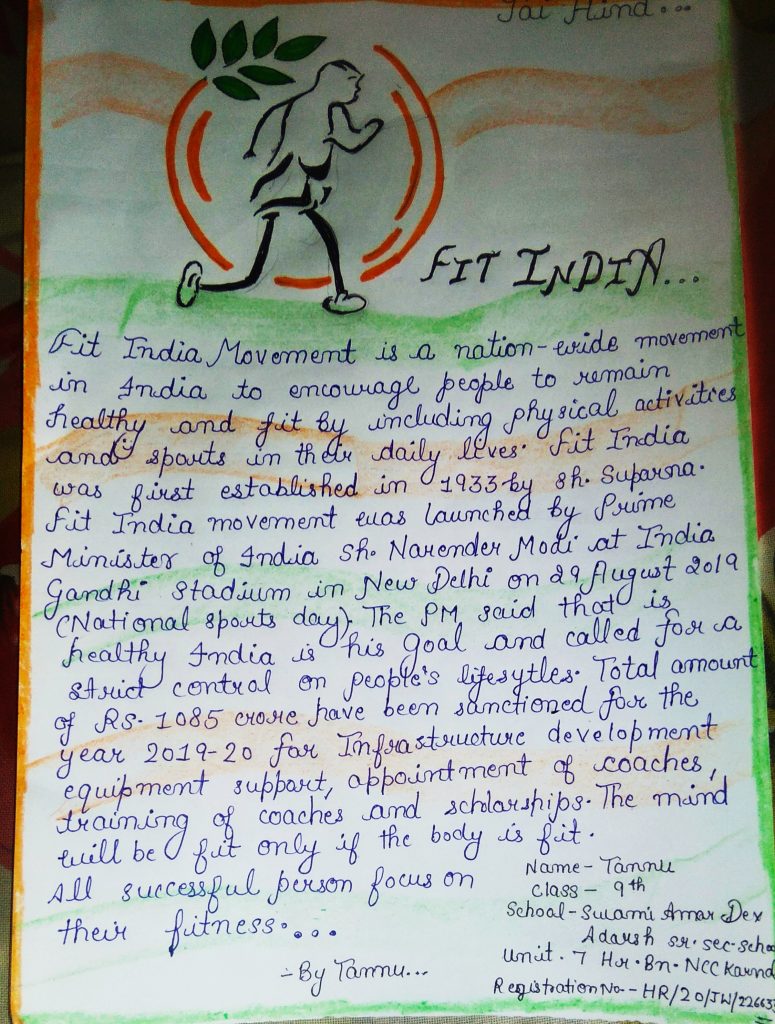 Jai Hind...
FIT INDIA...
Fit India Movement is a nation-wide movement
in India to encourage people to remain
healthy and fit by including physical activities
and sports in their daily lives. Fit India
was first established in 1933 by Sh. Suparna.
Fit India movement was launched by Prime
Minister of India Sh. Narender Modi at India
Gandhi Stadium in New Delhi on 29 August 2019
(National sports day). The PM said that is
healthy India is his goal and called for a
strict control on people's lifesytles. Total amount
of RS. 1085 crore have been sanctioned for the
year 2019-20 for Infrastructure development
equipment support, appointment of coaches,
training of coaches and schlarships. The mind
will be fit only if the body is fit.
All successful person focus on
their fitness....
-By Tannu...
Name- Tannu
Class- 9th
School- Swami Amar Dev
Adarsh sr. sec. scho
Unit. 7 Hr. Bn. NCC Karna
Registration No.- HR/20/JW/22663